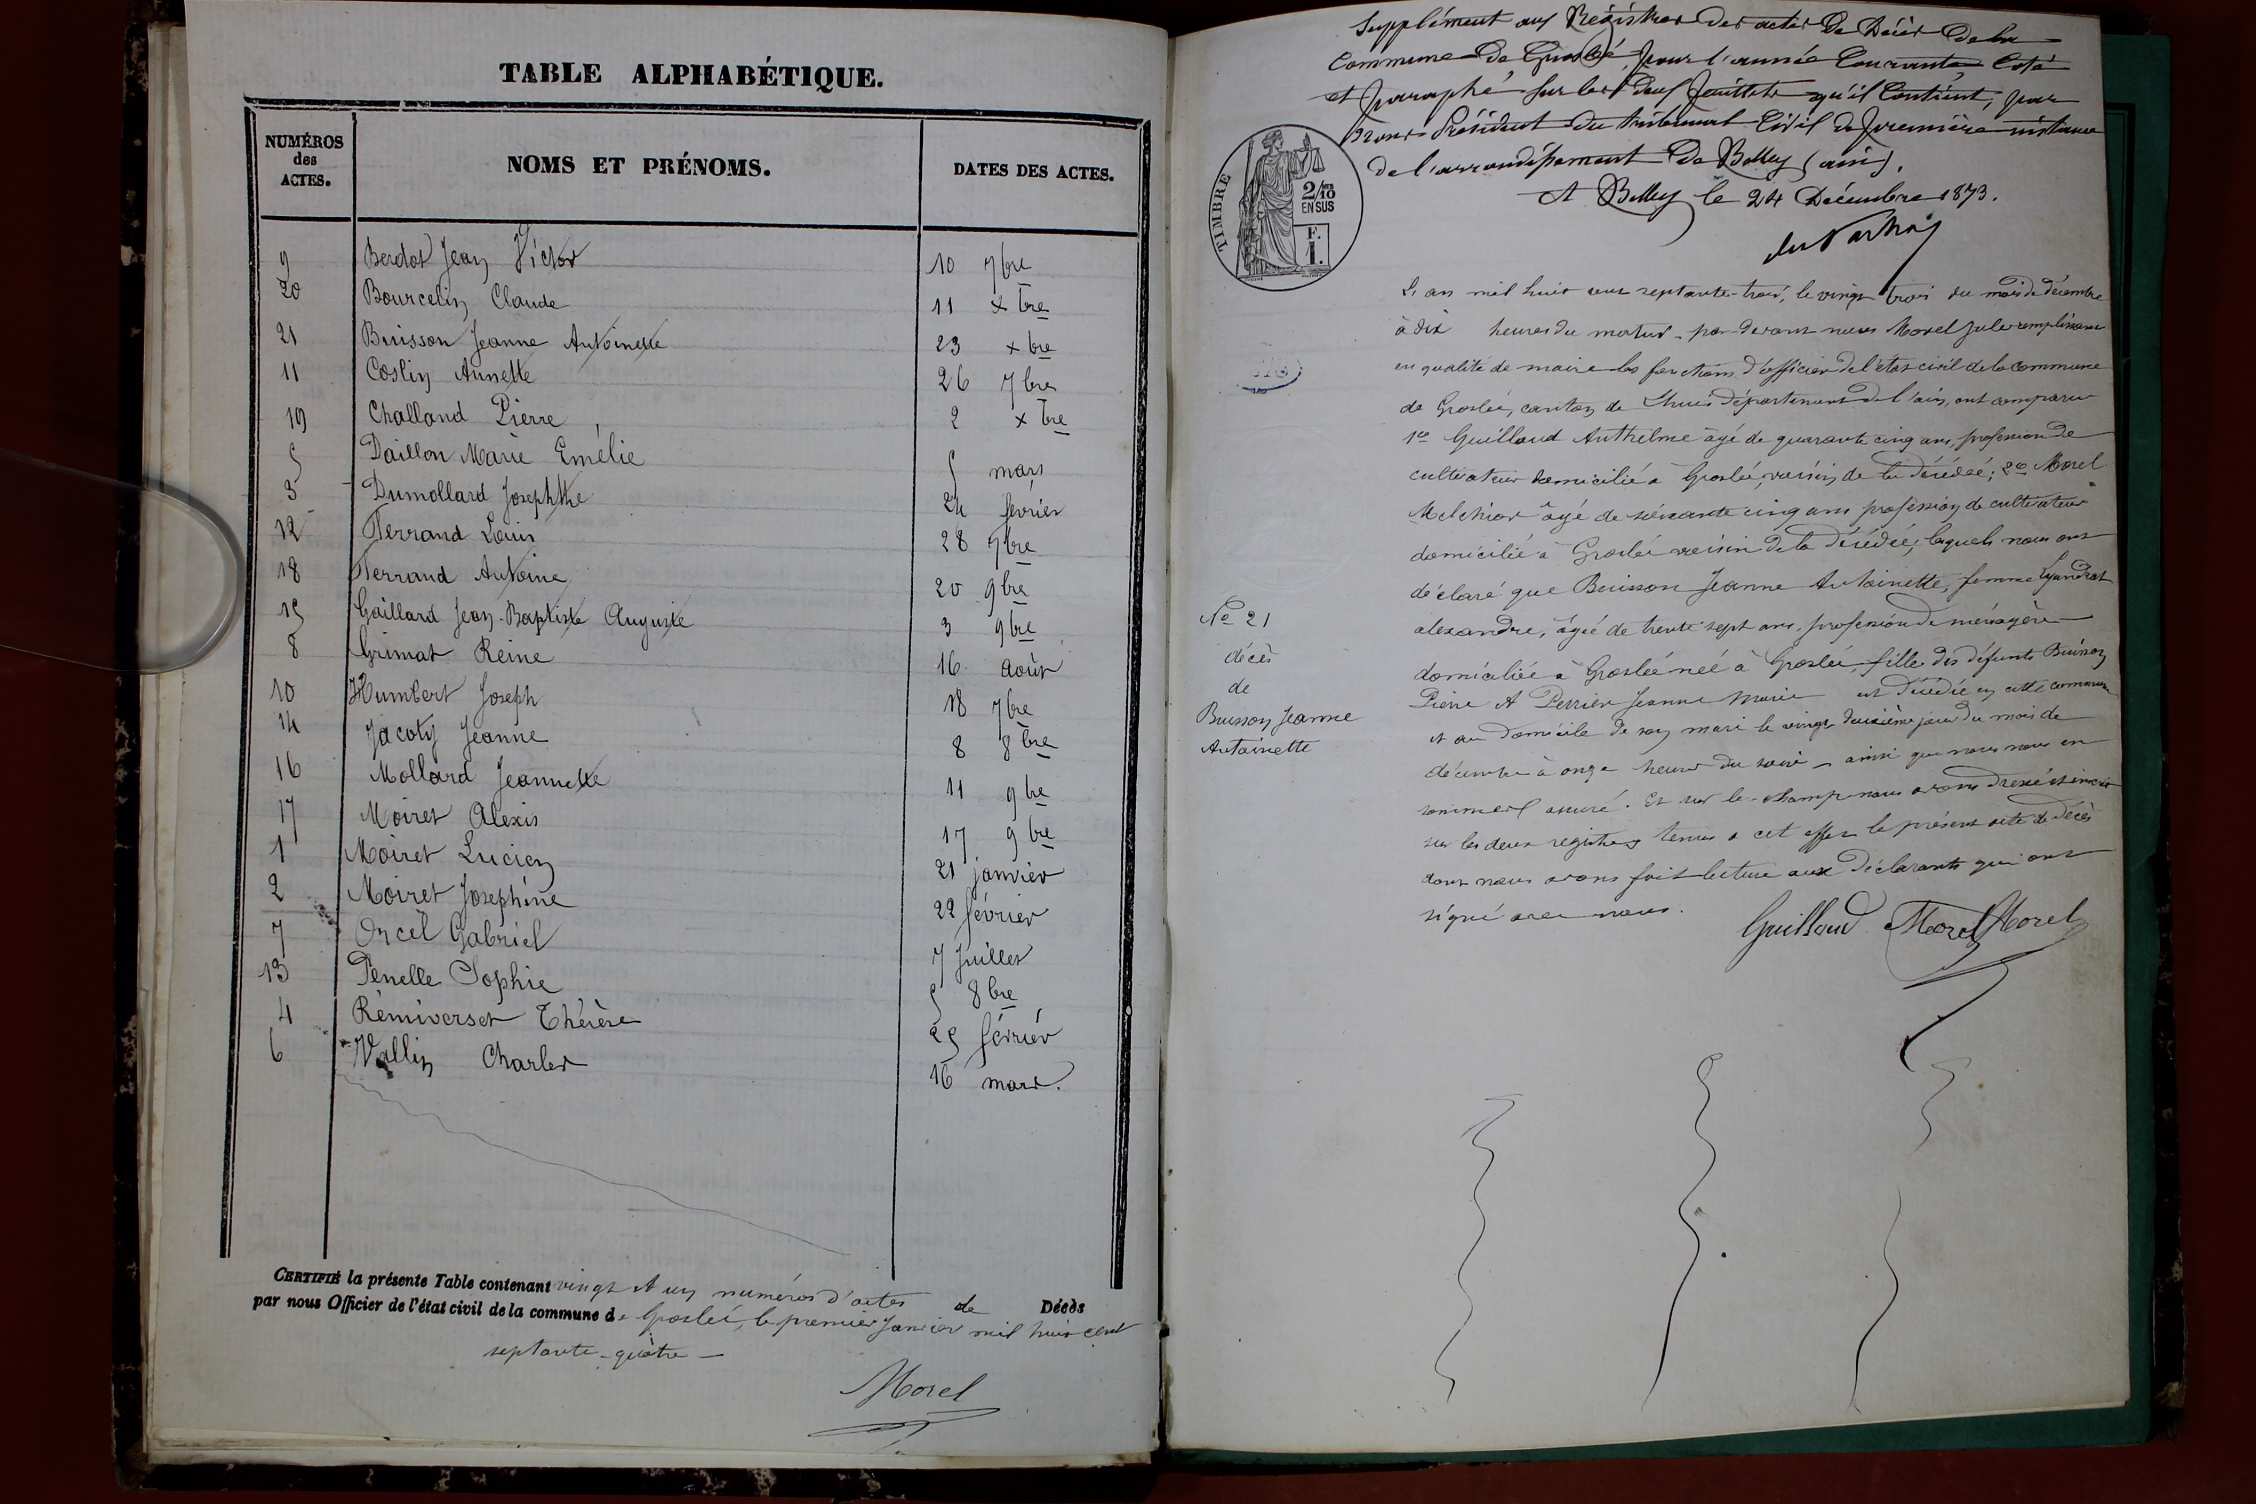 TABLE ALPHABÉTIQUE.
NUMÉROS des ACTES. NOMS ET PRÉNOMS. DATES DES ACTES.
9 Berdot Jean Victor 10 7bre
20 Bourcelin Claude 11 xbre
21 Buisson Jeanne Antoinette 23 xbre
11 Coslin Annette 26 7bre
19 Challand Pierre 2 xbre
5 Daillon Marie Emélie 5 mars
3 Dumollard Josephthe 24 février
12 Ferrand Louis 28 7bre
18 Ferrand Antoine 20 9bre
15 Gaillard Jean-Baptiste Auguste 3 9bre
8 Grimat Reine 16 août
10 Humbert Joseph 18 7bre
14 Jacoty Jeanne 8 8bre
16 Mollard Jeannette 11 9bre
17 Moiret Alexis 17 9bre
1 Moiret Lucien 21 janvier
2 Moiret Josephine 22 février
7 Orcel Gabriel 7 Juillet
13 Penelle Sophie 5 8bre
4 Rémiverset Thérèse 25 février
6 Vallin Charles 16 mars.
CERTIFIÉ la présente Table contenant vingt et un numéros d'actes de Décès
par nous Officier de l'état civil de la commune de Groslée, le premier Janvier mil huit cent
septante-quatre
Morel
Supplément aux Registres des actes De Décès De la
Commune De Groslée, pour l'année Courante Coté
et paraphé sur les deux feuillets qu'il Contient, par
Nous Président du tribunal Civil de première instance
de l'arrondissement De Belley (ain).
A Belley le 24 Décembre 1873.
TIMBRE
2/10
EN SUS
F.
1.
L'an mil huit cent septante-trois, le vingt trois du mois de décembre
à dix heures du matin, par devant nous Morel Jules remplissant
en qualité de maire les fonctions d'officier de l'état civil de la commune
de Groslée, canton de Lhuis département de l'ain, ont comparu
1er Guilloud Anthelme âgé de quarante cinq ans, profession de
cultivateur domicilié à Groslée, voisin de la décédée; 2e Morel
Melchior âgé de soixante cinq ans profession de cultivateur
domicilié à Groslée voisin de la décédée, lesquels nous ont
déclaré que Buisson Jeanne Antoinette, femme
alexandre, âgée de trente sept ans, profession de ménagère
domiciliée à Groslée neé à Groslée, fille des défunts Buisson
Pierre et Perrier Jeanne Marie est décédée en cette commune
et au domicile de son mari le vingt deuxième jour du mois de
décembre à onze heures du soir – ainsi que nous nous en
sommes assuré. Et sur le-champ nous avons dressé et inscrit
sur les deux registres tenus à cet effet le présent acte de décès
dont nous avons fait lecture aux déclarants qui ont
signé avec nous.
Guilloud Morel Morel
No 21
décès
de
Buisson Jeanne
Antoinette